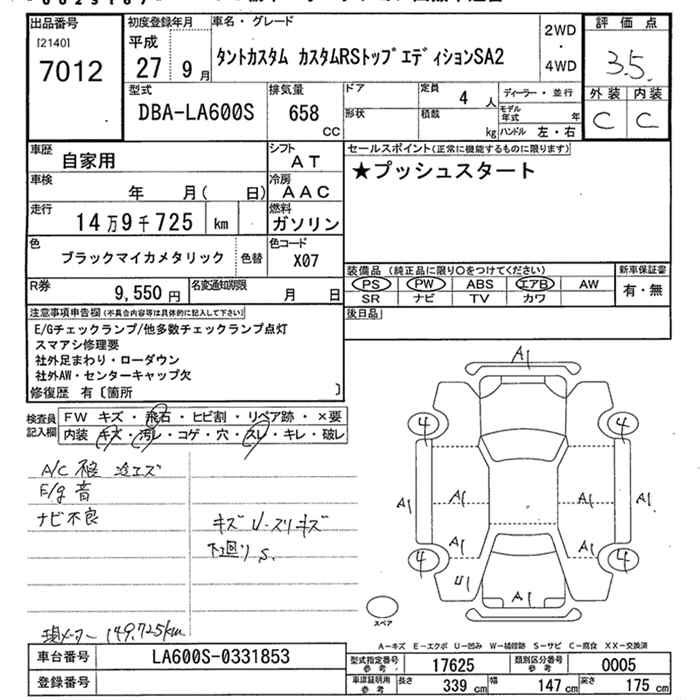 出品番号
[2140]
7012
初度登録年月
平成
27 9月
車名・グレード
タントカスタム カスタムRSトップエディションSA2
2WD
・
4WD
評価点
3.5
外装 内装
C C
型式
DBA-LA600S
排気量
658
CC
ドア
形状
定員
4 人
積載
kg
ディーラー・並行
モデル年式 年
ハンドル 左・右
車歴
自家用
シフト
AT
セールスポイント(正常に機能するものに限ります)
★プッシュスタート
車検
年 月( 日)
冷房
AAC
走行
14万9千725 km
燃料
ガソリン
色
ブラックマイカメタリック
色替
色コード
X07
装備品 (純正品に限り○をつけてください)
PS PW ABS エアB AW
SR ナビ TV カワ
新車保証書
有・無
R券
9,550円
名変通知期限
月 日
後日品
注意事項申告欄(不具合内容等は具体的に記入して下さい)
E/Gチェックランプ/他多数チェックランプ点灯
スマアシ修理要
社外足まわり・ローダウン
社外AW・センターキャップ欠
修復歴 有〔箇所 〕
検査員
記入欄
FW キズ・飛石・ヒビ割・リペア跡・×要
内装 キズ・汚レ・コゲ・穴・スレ・キレ・破レ
A/C
E/g 音
ナビ不良
キズ U・スリキズ
下回り S.
現メーター 149,725km
A1
4 4
A1 A1 A1 A1
A1 A1
4 4
U1
A1
スペア
A-キズ E-エクボ U-凹み W-補修跡 S-サビ C-腐食 XX-交換済
車台番号
LA600S-0331853
登録番号
型式指定番号
参考
17625
類別区分番号
参考
0005
車庫証明用
参考
長さ 339 cm 幅 147 cm 高さ 175 cm